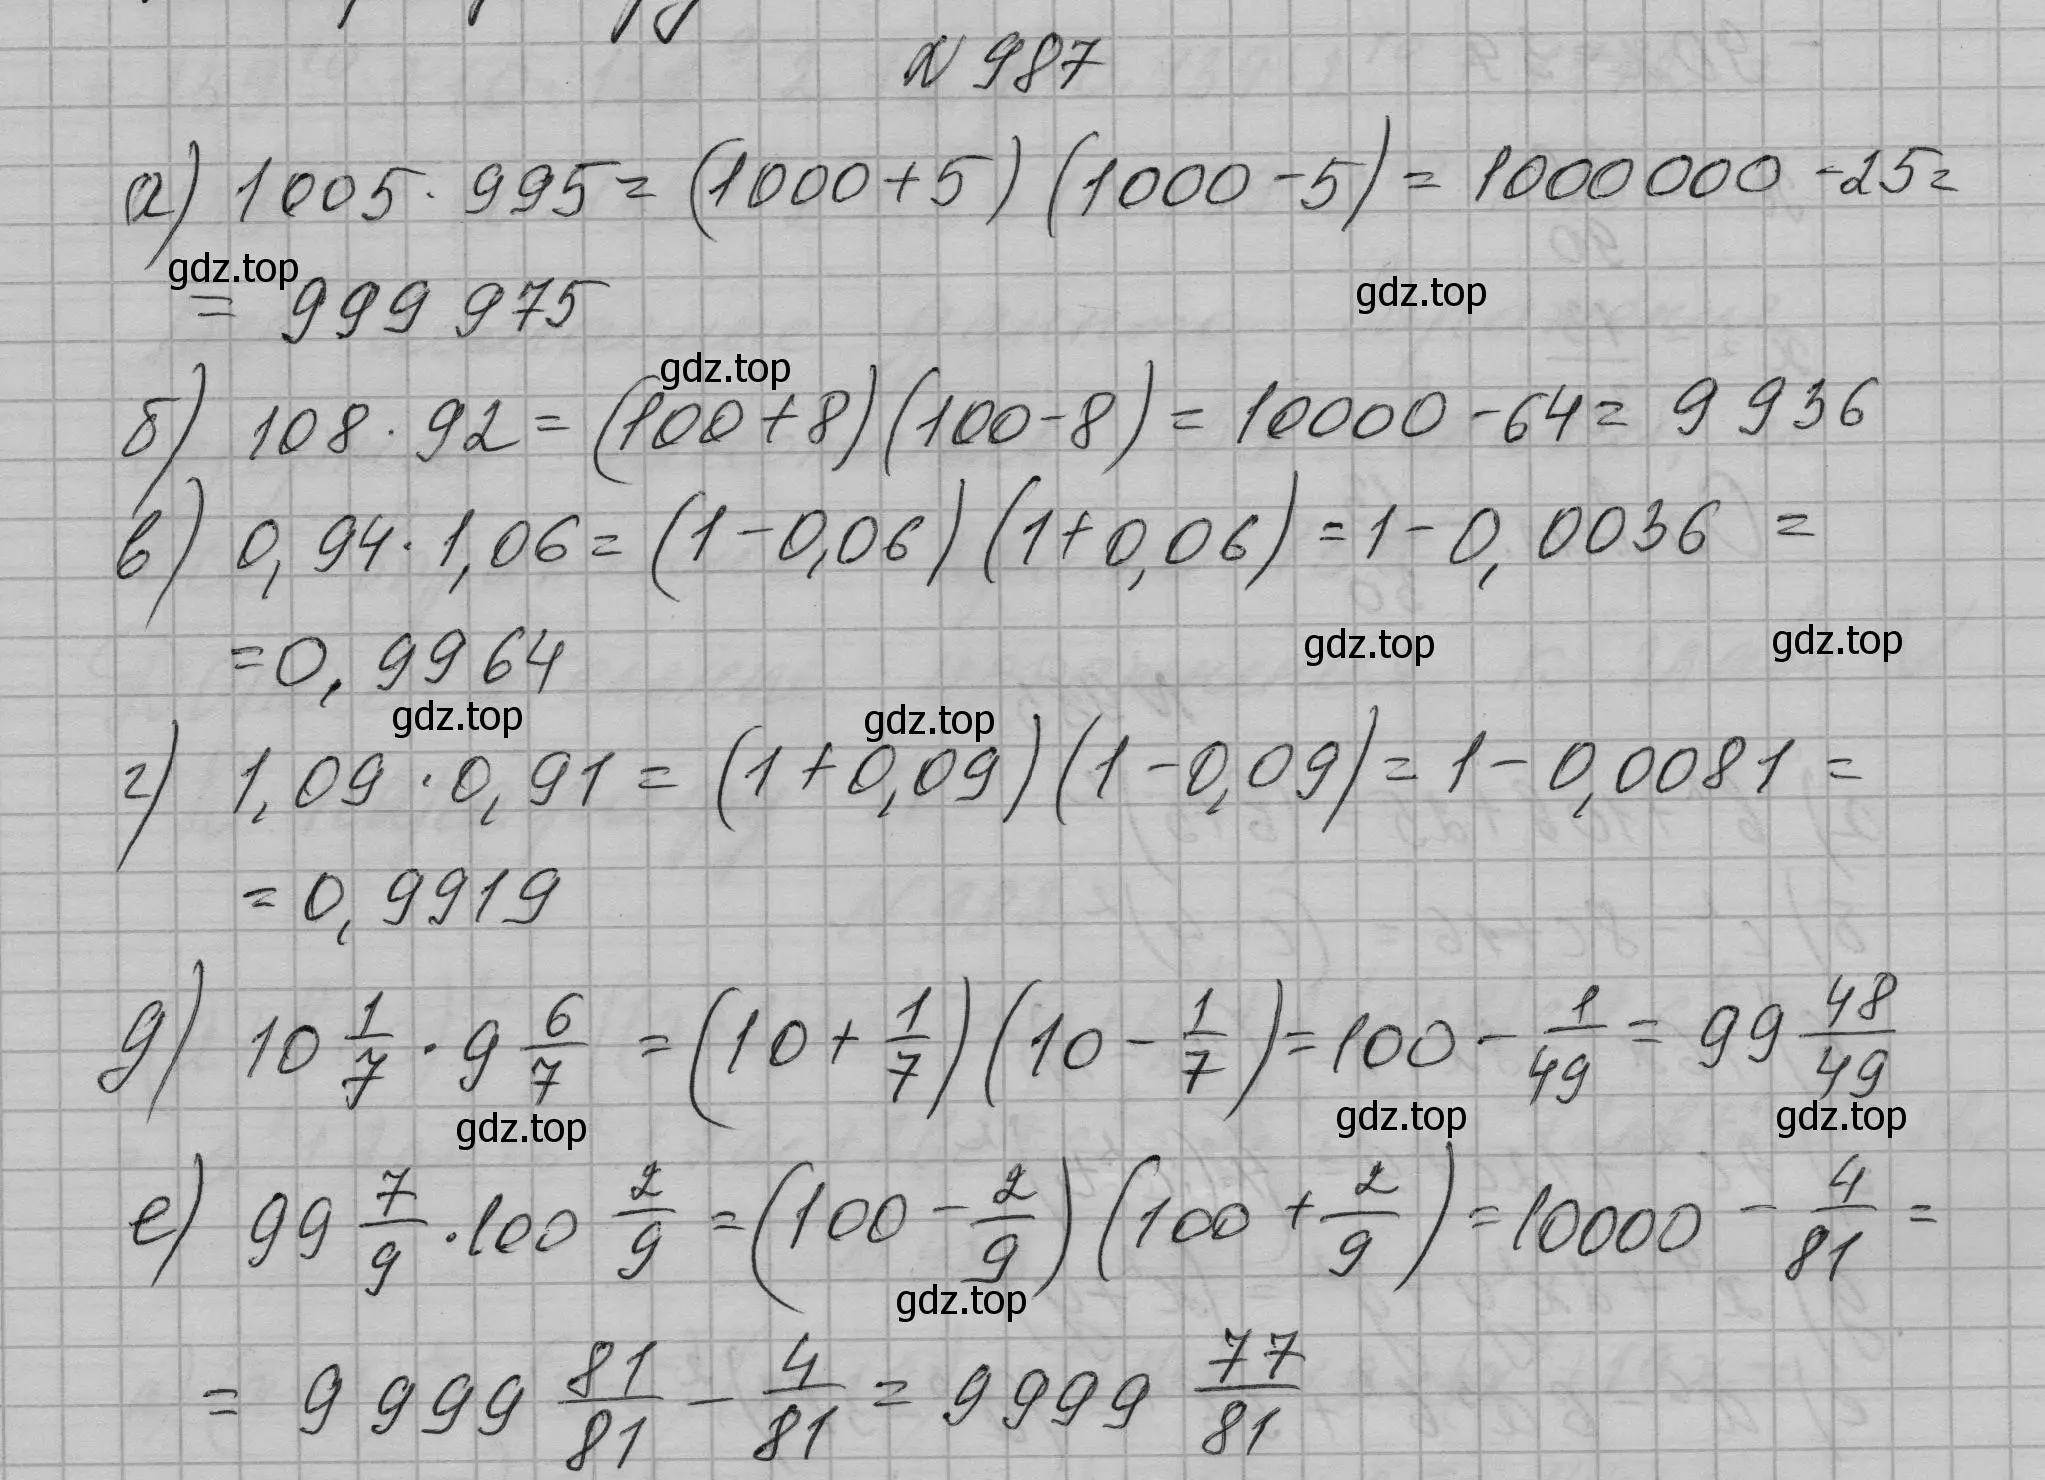 № 987
а) 1005 · 995 = (1000 + 5) (1000 - 5) = 1000000 - 25 =
gdz.top
= 999 975
gdz.top
gdz.top
б) 108 · 92 = (100 + 8) (100 - 8) = 10000 - 64 = 9 936
в) 0,94 · 1,06 = (1 - 0,06) (1 + 0,06) = 1 - 0,0036 =
= 0,9964
gdz.top
gdz.top
gdz.top
gdz.top
г) 1,09 · 0,91 = (1 + 0,09) (1 - 0,09) = 1 - 0,0081 =
= 0,9919
д) 10 1/7 · 9 6/7 = (10 + 1/7) (10 - 1/7) = 100 - 1/49 = 99 48/49
gdz.top
gdz.top
gdz.top
е) 99 7/9 · 100 2/9 = (100 - 2/9) (100 + 2/9) = 10000 - 4/81 =
gdz.top
= 9999 81/81 - 4/81 = 9999 77/81